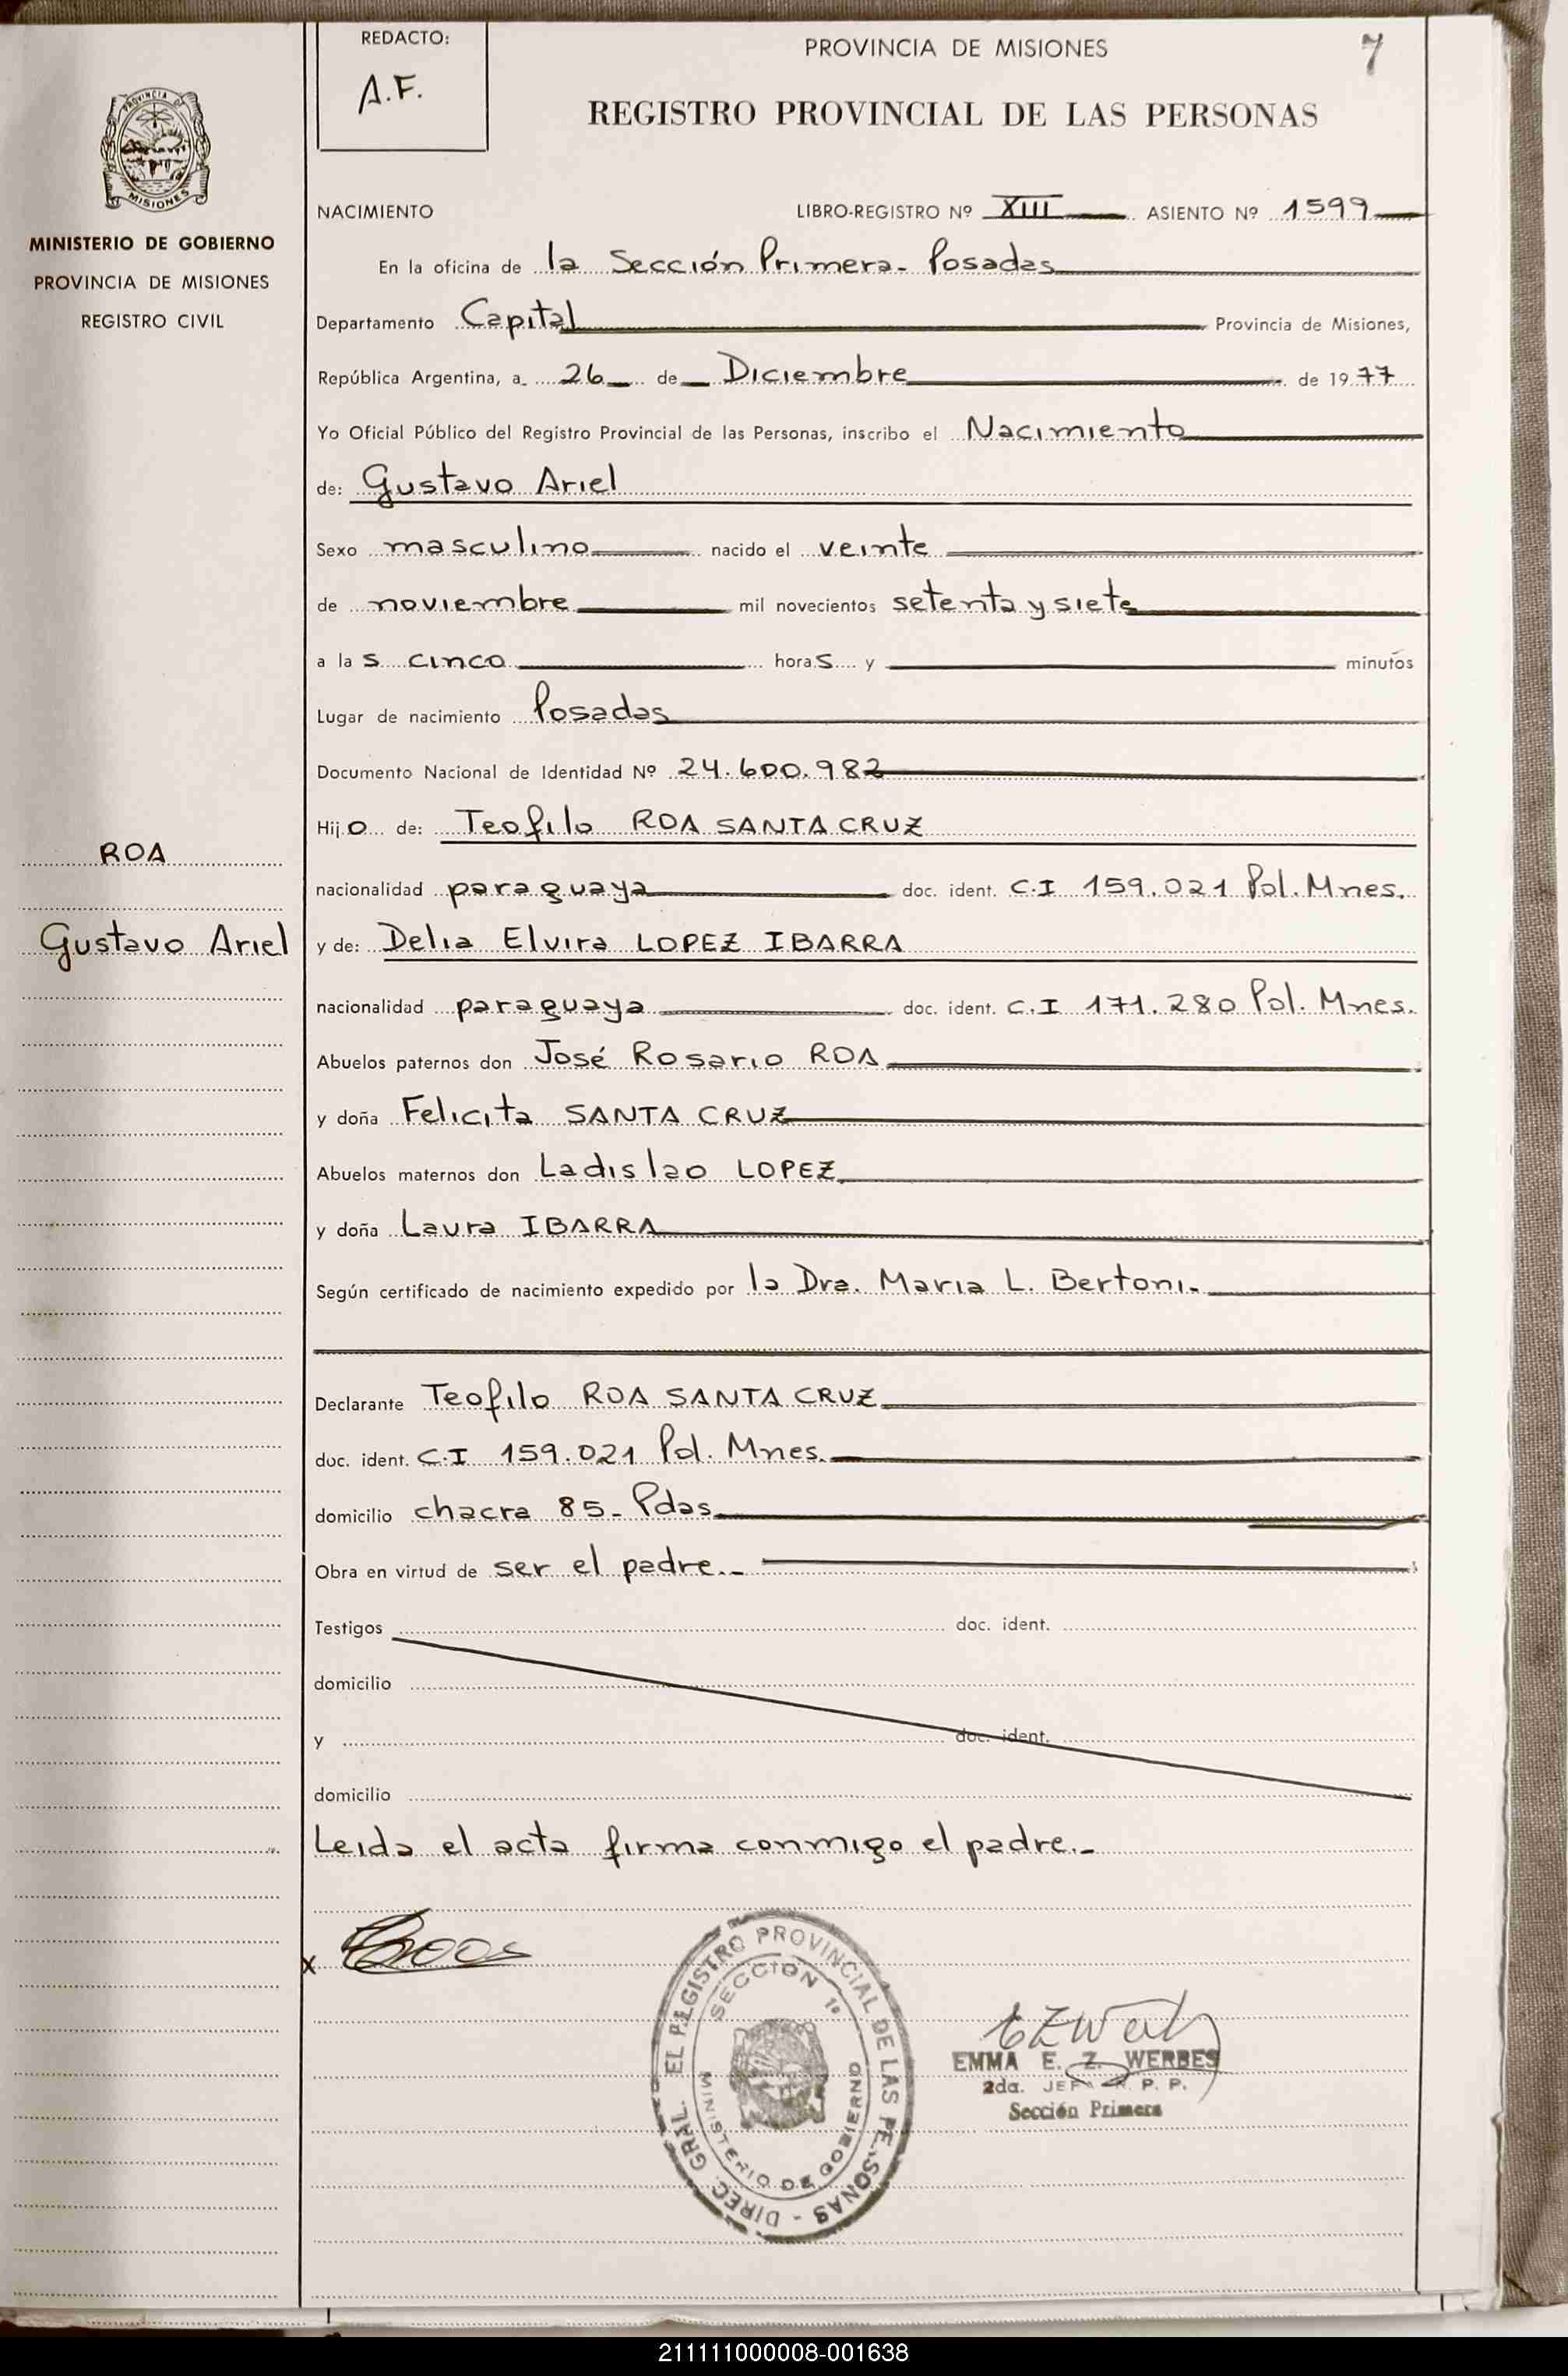 REDACTO:
A.F.
PROVINCIA DE MISIONES
7
REGISTRO PROVINCIAL DE LAS PERSONAS
PROVINCIA DE
MISIONES
MINISTERIO DE GOBIERNO
PROVINCIA DE MISIONES
REGISTRO CIVIL
NACIMIENTO LIBRO-REGISTRO Nº XIII ASIENTO Nº 1599
En la oficina de la Sección Primera- Posadas
Departamento Capital Provincia de Misiones,
República Argentina, a 26 de Diciembre de 1977
Yo Oficial Público del Registro Provincial de las Personas, inscribo el Nacimiento
de: Gustavo Ariel
Sexo masculino nacido el veinte
de noviembre mil novecientos setenta y siete
a las cinco horas y minutos
Lugar de nacimiento Posadas
Documento Nacional de Identidad Nº 24.600.982
Hijo de: Teofilo ROA SANTA CRUZ
ROA
nacionalidad paraguaya doc. ident. C.I 159.021 Pol. Mnes.
Gustavo Ariel
y de: Delia Elvira LOPEZ IBARRA
nacionalidad paraguaya doc. ident. C.I 171.280 Pol. Mnes.
Abuelos paternos don José Rosario ROA
y doña Felicita SANTA CRUZ
Abuelos maternos don Ladislao LOPEZ
y doña Laura IBARRA
Según certificado de nacimiento expedido por la Dra. Maria L. Bertoni.
Declarante Teofilo ROA SANTA CRUZ
doc. ident. C.I 159.021 Pol. Mnes.
domicilio chacra 85- Pdas
Obra en virtud de ser el padre.-
Testigos doc. ident.
domicilio
y doc. ident.
domicilio
Leida el acta firma conmigo el padre.-
x
DIREC. GRAL. EL REGISTRO PROVINCIAL DE LAS PERSONAS -
SECCION 1ª
MINISTERIO DE GOBIERNO
EMMA E. Z. WERBES
2da. JEFA R. P. P.
Sección Primera
211111000008-001638